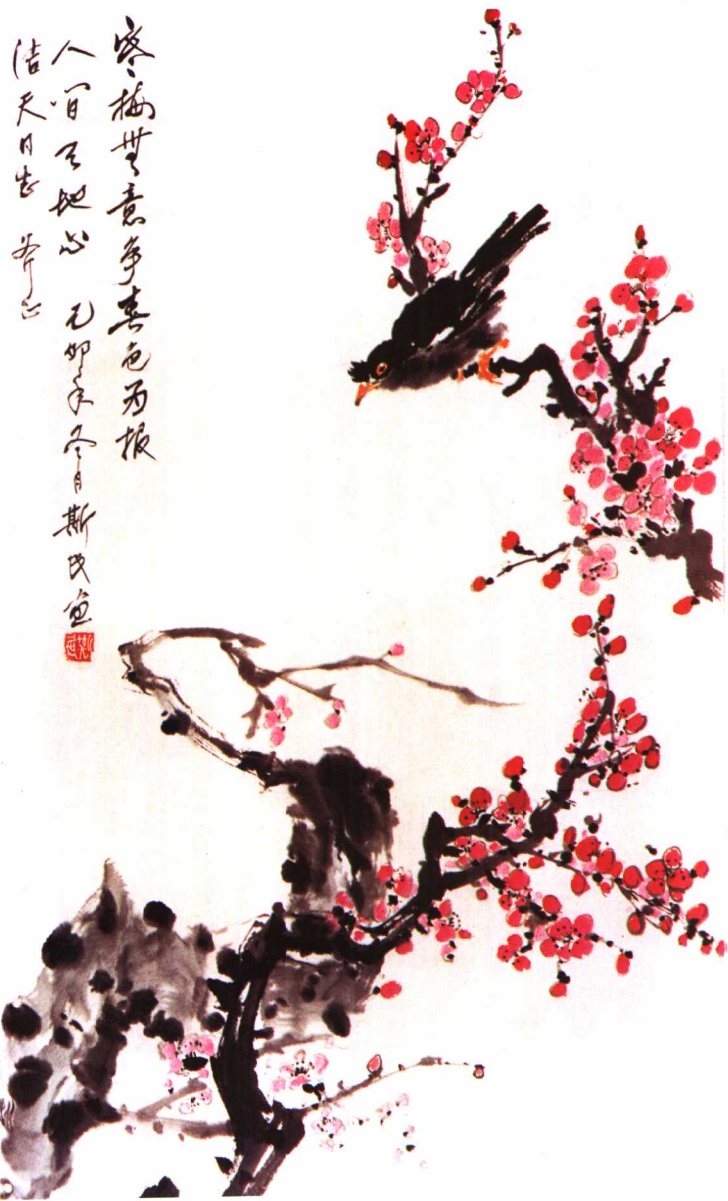 寒梅無意争春色为报
人间天地心 己卯年冬月斯民画
洁天同志 斧正